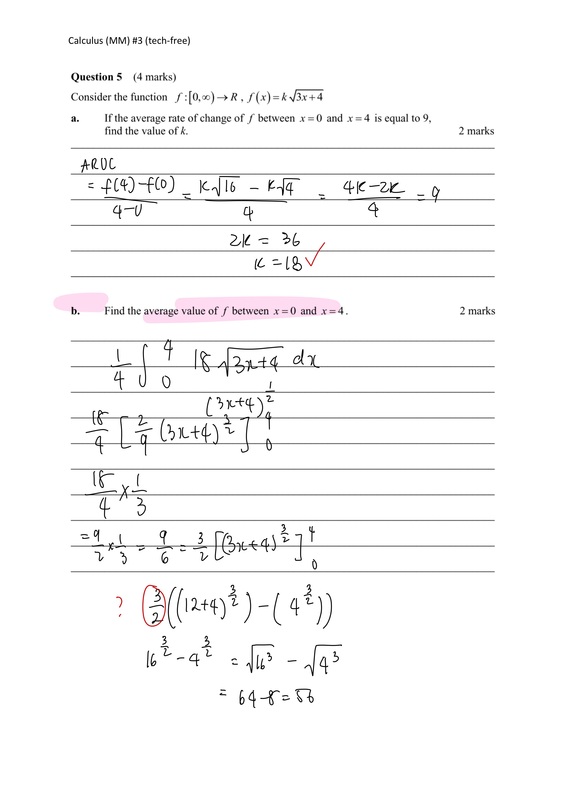 Calculus (MM) #3 (tech-free)
Question 5 (4 marks)
Consider the function f:[0,∞)→R, f(x)=k√(3x+4)
a. If the average rate of change of f between x=0 and x=4 is equal to 9,
find the value of k. 2 marks
AROC
= (f(4)-f(0))/(4-0) = (k√16 - k√4)/4 = (4k-2k)/4 = 9
2k = 36
k = 18 ✓
b. Find the average value of f between x=0 and x=4. 2 marks
1/4 ∫₀⁴ 18√(3x+4) dx
(3x+4)^(1/2)
18/4 [2/9 (3x+4)^(3/2)]₀⁴
18/4 × 1/3
= 9/2 × 1/3 = 9/6 = 3/2 [(3x+4)^(3/2)]₀⁴
? 3/2 ((12+4)^(3/2)) - (4^(3/2)))
16^(3/2) - 4^(3/2) = √16³ - √4³
= 64-8 = 56